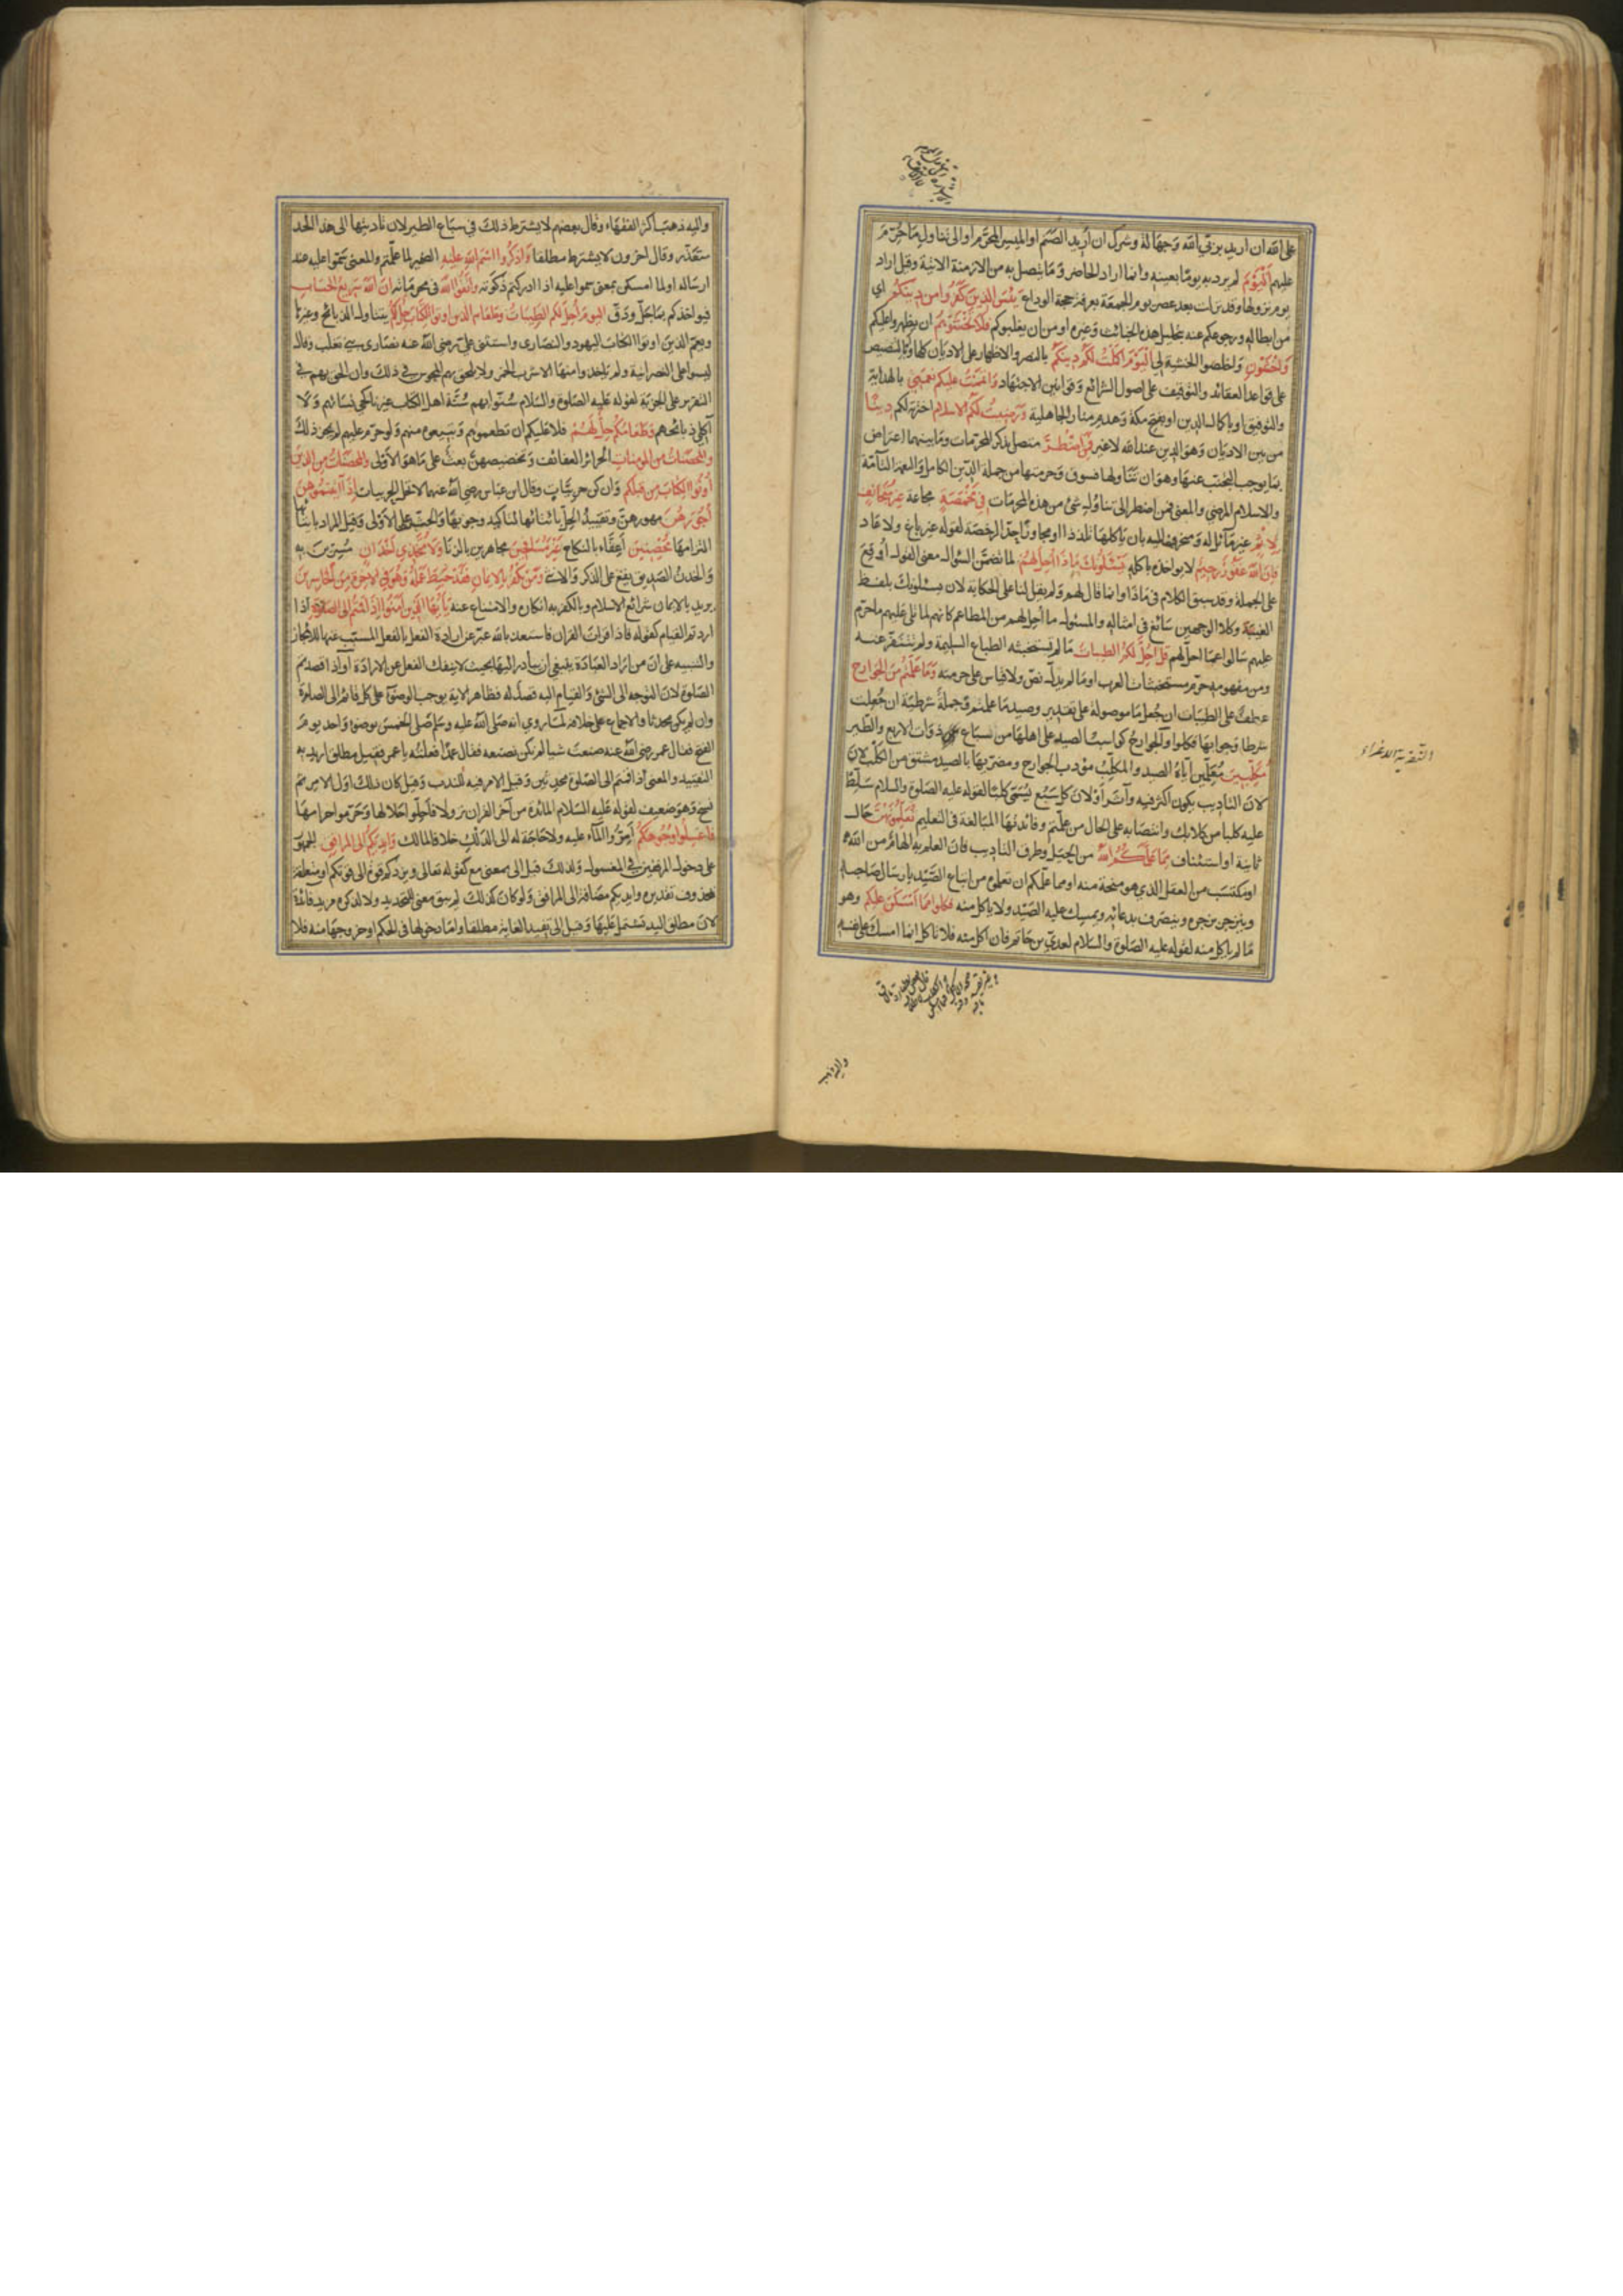 على الله ان اريد بربي الله وجهالة وشرك ان أريد الصنم او الميسر المحرم او الى تناول ما حرم
عليهم اليوم لم يرد به يوما بعينه وانما اراد الحاضر وما يتصل به من الازمنة الاتية وقيل اراد
يوم نزولها وقد نزلت بعد عصر يوم الجمعة بعرفة حجة الوداع يئس الذين كفروا من دينكم اي
من ابطاله ورجوعكم عنه بتحليل هذه الخبائث وغيره او من ان يغلبوكم فلا تخشوهم ان يظهروا عليكم
واخشون واخلصوا الخشية لي اليوم اكملت لكم دينكم بالنصر والاظهار على الاديان كلها او بالتنصيص
على قواعد العقائد والتوقيف على اصول الشرائع وقوانين الاجتهاد واتممت عليكم نعمتي بالهداية
والتوفيق او باكمال الدين او بفتح مكة وهدم منار الجاهلية ورضيت لكم الاسلام اخترته لكم دينا
من بين الاديان وهو الدين عند الله لا غير فمن اضطر متصل بذكر المحرمات وما بينهما اعتراض
بما يوجب التجنب عنها وهو ان تناولها فسوق وحرمتها من جملة الدين الكامل والنعمة التامة
والاسلام المرضي والمعنى فمن اضطر الى تناول شئ من هذه المحرمات في مخمصة مجاعة غير متجانف
لاثم غير مائل له ومنحرف اليه بان ياكلها تلذذا او مجاوزا حد الرخصة لقوله غير باغ ولا عاد
فان الله غفور رحيم لا يؤاخذه باكله يسئلونك ماذا احل لهم لما تضمن السؤال معنى القول اوقع
على الجملة وقد سبق الكلام في ماذا وانما قال لهم ولم يقل لنا على الحكاية لان يسئلونك بلفظ
الغيبة وكلا الوجهين سائغ في امثاله والمسئول ما أحل لهم من المطاعم كانهم لما تلي عليهم ما حرم
عليهم سالوا عما احل لهم قل احل لكم الطيبات ما لم تستخبثه الطباع السليمة ولم تتنفر عنه
ومن مفهومه حرم مستخبثات العرب او ما لم يدل نص ولا قياس على حرمته وما علمتم من الجوارح
عطف على الطيبات ان جعل ما موصولة على تقدير وصيد ما علمتم وجملة شرطية ان جعلت
شرطا وجوابها فكلوا والجوارح كواسب الصيد على اهلها من سباع ذوات الاربع والطير
مكلبين معلمين اياه الصيد والمكلب مؤدب الجوارح ومضريها بالصيد مشتق من الكلب لان
لان التاديب يكون اكثر فيه وآثر او لان كل سبع يسمى كلبا لقوله عليه الصلوة والسلام سلط
عليه كلبا من كلابك وانتصابه على الحال من علمتم وفائدتها المبالغة في التعليم تعلمونهن حال
ثانية او استئناف مما علمكم الله من الحيل وطرق التاديب فان العلم به الهام من الله
او مكتسب من العقل الذي هو منحة منه او مما علمكم ان تعلموه من اتباع الصيد بارسال صاحبه
وينزجر بزجره وينصرف بدعائه ويمسك عليه الصيد ولا ياكل منه فكلوا مما امسكن عليكم وهو
ما لم ياكل منه لقوله عليه الصلوة والسلام لعدي بن حاتم فان اكل منه فلا تاكل انما امسك على نفسه
واليه ذهب
واليه ذهب اكثر الفقهاء وقال بعضهم لا يشترط ذلك في سباع الطير لان تاديبها الى هذا الحد
متعذر وقال آخرون لا يشترط مطلقا واذكروا اسم الله عليه الضمير لما علمتم والمعنى سموا عليه عند
ارساله او لما امسكن بمعنى سموا عليه اذا ادركتم ذكوته واتقوا الله في محرماته ان الله سريع الحساب
فيواخذكم بما جل ودق اليوم احل لكم الطيبات وطعام الذين اوتوا الكتاب حل لكم يتناول الذبائح وغيرها
ويعم الذين اوتوا الكتاب اليهود والنصارى واستثنى علي رضي الله عنه نصارى بني تغلب وقال
ليسوا على النصرانية ولم ياخذوا منها الا شرب الخمر ولا يلحق بهم المجوس في ذلك وان الحق بهم في
التقرير على الجزية لقوله عليه الصلوة والسلام سنوا بهم سنة اهل الكتاب غير ناكحي نسائهم ولا
آكلي ذبائحهم وطعامكم حل لهم فلا عليكم ان تطعموهم وتبيعوه منهم ولو حرم عليهم لم يجز ذلك
والمحصنات من المؤمنات الحرائر العفائف وتخصيصهن بعث على ما هو الاولى والمحصنات من الذين
اوتوا الكتاب من قبلكم وان كن حربيات وقال ابن عباس رضي الله عنهما لا تحل الحربيات اذا آتيتموهن
أجورهن مهورهن وتقييد الحل باتيانها لتاكيد وجوبها والحث على الاولى وقيل المراد باتيانها
التزامها محصنين أعفاء بالنكاح غير مسافحين مجاهرين بالزنا ولا متخذي اخدان مسرين به
والخدن الصديق يقع على الذكر والانثى ومن يكفر بالايمان فقد حبط عمله وهو في الاخرة من الخاسرين
يريد بالايمان شرائع الاسلام وبالكفر به انكاره والامتناع عنه يا ايها الذين آمنوا اذا قمتم الى الصلوة اذا
اردتم القيام كقوله فاذا قرات القران فاستعذ بالله عبر عن ارادة الفعل بالفعل المسبب عنها للايجاز
والتنبيه على ان من اراد العبادة ينبغي ان يبادر اليها بحيث لا ينفك الفعل عن الارادة او اذا قصدتم
الصلوة لان التوجه الى الشئ والقيام اليه قصد له فظاهر الاية يوجب الوضوء على كل قائم الى الصلوة
وان لم يكن محدثا والاجماع على خلافه لما روي انه صلى الله عليه وسلم صلى الخمس بوضوء واحد يوم
الفتح فقال عمر رضي الله عنه صنعت شيا لم تكن تصنعه فقال عمدا فعلته يا عمر فقيل مطلق اريد به
التقييد والمعنى اذا قمتم الى الصلوة محدثين وقيل الامر فيه للندب وقيل كان ذلك اول الامر ثم
نسخ وهو ضعيف لقوله عليه السلام المائدة من آخر القران نزولا فأحلوا حلالها وحرموا حرامها
فاغسلوا وجوهكم أمروا الماء عليه ولا حاجة له الى الدلك خلافا لمالك وايديكم الى المرافق الجمهور
على دخول المرفقين في المغسول ولذلك قيل الى بمعنى مع كقوله تعالى ويزدكم قوة الى قوتكم او متعلقة
بمحذوف تقديره وايديكم مضافة الى المرافق ولو كان كذلك لم يبق معنى للتحديد ولا لذكره مزيد فائدة
لان مطلق اليد تشتمل عليها وقيل الى تفيد الغاية مطلقا واما دخولها في الحكم او خروجها منه فلا